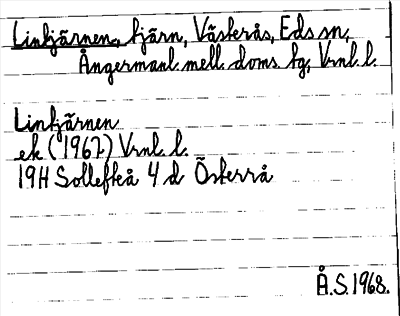 Lintjärnen, tjärn, Västerås, Eds sn,
Ångermanl. mell. doms. tg, Vrnl. l.
Lintjärnen
ek (1967) Vrnl. l.
19H Sollefteå 4 d Österrå
Å.S. 1968.